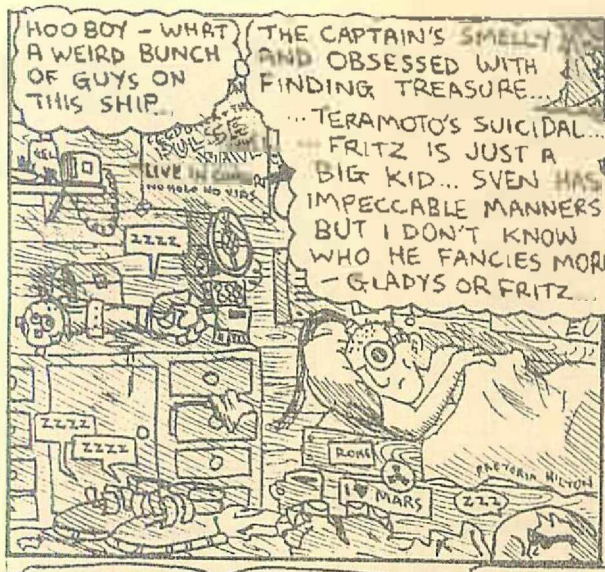 HOO BOY - WHAT
A WEIRD BUNCH
OF GUYS ON
THIS SHIP...
THE CAPTAIN'S SMELLY
AND OBSESSED WITH
FINDING TREASURE...
...TERAMOTO'S SUICIDAL...
FRITZ IS JUST A
BIG KID... SVEN HAS
IMPECCABLE MANNERS
BUT I DON'T KNOW
WHO HE FANCIES MORE
- GLADYS OR FRITZ...
GEL
LIVE IN
ZZZZ
EU
ZZZZ
ZZZZ
ROME
I ♥ MARS
PRETORIA HILTON
ZZZ